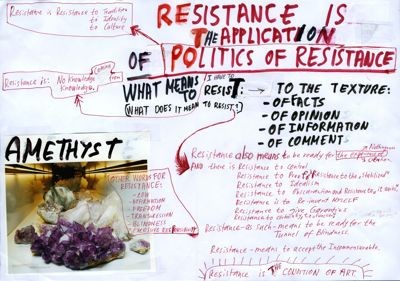 Resistance is Resistance to Tradition
to Identity
to Culture
RESISTANCE IS
THE APPLICATION
OF POLITICS OF RESISTANCE
Resistance is: No Knowledge Coming from
Knowledge.
WHAT MEANS I HAVE TO
TO RESIST:
(WHAT DOES IT MEAN TO RESIST?)
→ TO THE TEXTURE:
- OF FACTS
- OF OPINION
- OF INFORMATION
- OF COMMENT
AMETHYST
OTHER WORDS FOR
RESISTANCE:
- AFFIRMATION
- FREEDOM
- TRANSGRESSION
- BLINDNESS
- EXCESSIVE RESPONSIBILITY
Resistance also means to be ready for the
And there is Resistance to Control
Resistance to Resistance to the established
Resistance to Idealism
Resistance to Preservation and Resistance to
Resistance is to Re-invent MYSELF
Resistance to Give Guarantees
Resistance to
Resistance - as such - means to be ready for the
Tunnel of Blindness.
Resistance - means to accept the Incommensurable.
Resistance is THE CONDITION OF ART.